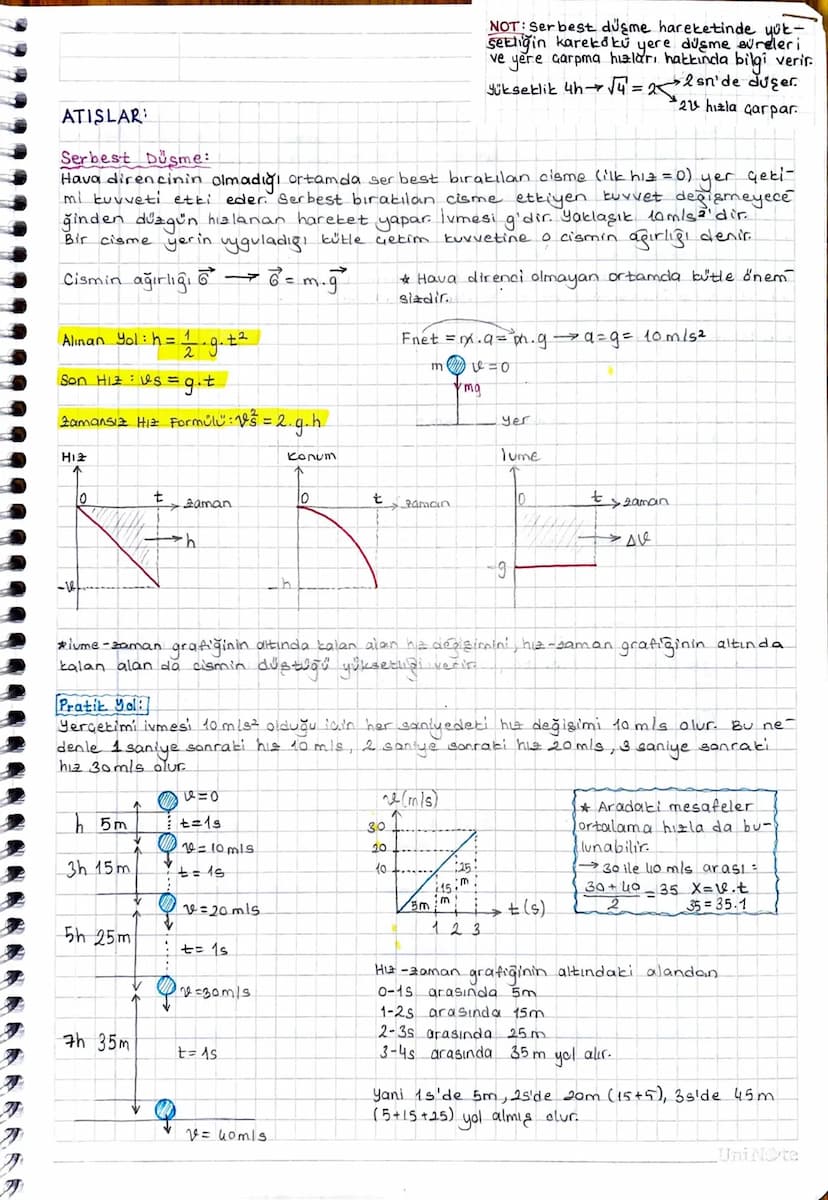 NOT: Serbest düşme hareketinde yük-
sekliğin karekökü yere düşme süreleri
ve yere çarpma hızları hakkında bilgi verir.
Yükseklik 4h → √4 = 2 → 2sn'de düşer.
→ 2υ hızla çarpar.
ATIŞLAR:
Serbest Düşme:
Hava direncinin olmadığı ortamda serbest bırakılan cisme (ilk hız = 0) yer çeki-
mi kuvveti etki eder. Serbest bırakılan cisme etkiyen kuvvet değişmeyece
ğinden düzgün hızlanan hareket yapar. İvmesi g'dir. Yaklaşık 10 m/s²'dir.
Bir cisme yerin uyguladığı kütle çekim kuvvetine o cismin ağırlığı denir.
Cismin ağırlığı G⃗ → G⃗ = m.g⃗
* Hava direnci olmayan ortamda kütle önem
sizdir.
Alınan Yol: h = 1/2 . g . t²
Fnet = m.a = m.g → a = g = 10 m/s²
Son Hız: υs = g.t
m υ=0
mg
yer
Zamansız Hız Formülü: υs² = 2.g.h
Hız
0 t zaman
h
-υ
Konum
0 t zaman
-h
İvme
0 t zaman
Δυ
-g
*İvme-zaman grafiğinin altında kalan alan hız değişimini, hız-zaman grafiğinin altında
kalan alan da cismin düştüğü yüksekliği verir.
Pratik Yol:
Yerçekimi ivmesi 10 m/s² olduğu için her saniyedeki hız değişimi 10 m/s olur. Bu ne-
denle 1 saniye sonraki hız 10 m/s, 2 saniye sonraki hız 20 m/s, 3 saniye sonraki
hız 30 m/s olur.
υ=0
h 5m t=1s
υ=10m/s
3h 15m t=1s
υ=20 m/s
5h 25m t=1s
υ=30m/s
7h 35m t=1s
υ=40m/s
υ(m/s)
30
20
10
5m 15 m 25 m
t(s)
1 2 3
* Aradaki mesafeler
ortalama hızla da bu-
lunabilir.
→ 30 ile 40 m/s arası =
30+40/2 = 35 X=υ.t
35=35.1
Hız-zaman grafiğinin altındaki alandan
0-1s arasında 5m
1-2s arasında 15m
2-3s arasında 25m
3-4s arasında 35m yol alır.
Yani 1s'de 5m, 2s'de 20m (15+5), 3s'de 45m
(5+15+25) yol almış olur.
UniNote